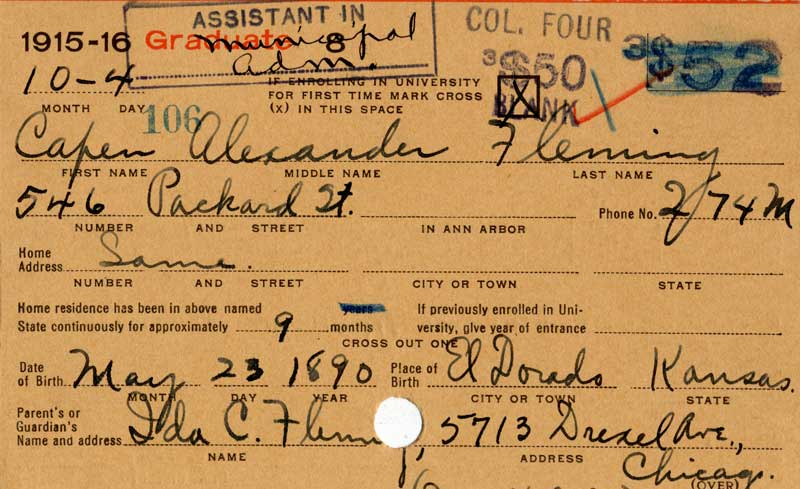 ASSISTANT IN
COL. FOUR
1915-16 Graduate 8
municipal
adm.
3 $50
3 $52
BLANK
10-4
IF ENROLLING IN UNIVERSITY
FOR FIRST TIME MARK CROSS
(X) IN THIS SPACE X
MONTH DAY
106
Capen Alexander Fleming
FIRST NAME MIDDLE NAME LAST NAME
546 Packard St. Phone No. 2174M
NUMBER AND STREET IN ANN ARBOR
Home
Address Same.
NUMBER AND STREET CITY OR TOWN STATE
Home residence has been in above named years If previously enrolled in Uni-
State continuously for approximately 9 months versity, give year of entrance
CROSS OUT ONE
Date
of Birth May 23 1890 Place of
Birth El Dorado Kansas.
MONTH DAY YEAR CITY OR TOWN STATE
Parent's or
Guardian's
Name and address Ida C. Fleming, 5713 Drexel Ave.,
NAME ADDRESS
Chicago.
(OVER)